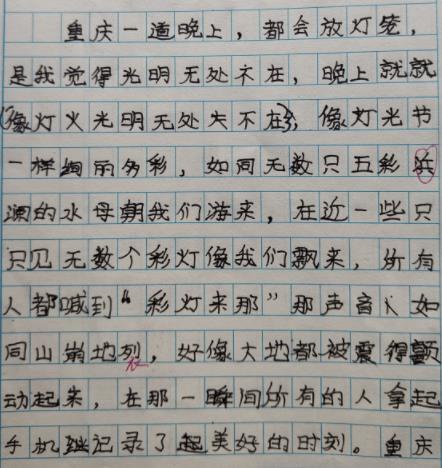 重庆一道晚上，都会放灯笼，
是我觉得光明无处不在，晚上就就
(像灯火光明无处失不在)，像灯光节
一样绚丽多彩，如同无数只五彩浜
澜的水母朝我们游来，在近一些只
只见无数个彩灯像我们飘来，所有
人都喊到“彩灯来那”那声音如
同山崩地列，好像大地都被震得颤
动起来，在那一瞬间所有的人拿起
手机记录了起美好的时刻。重庆